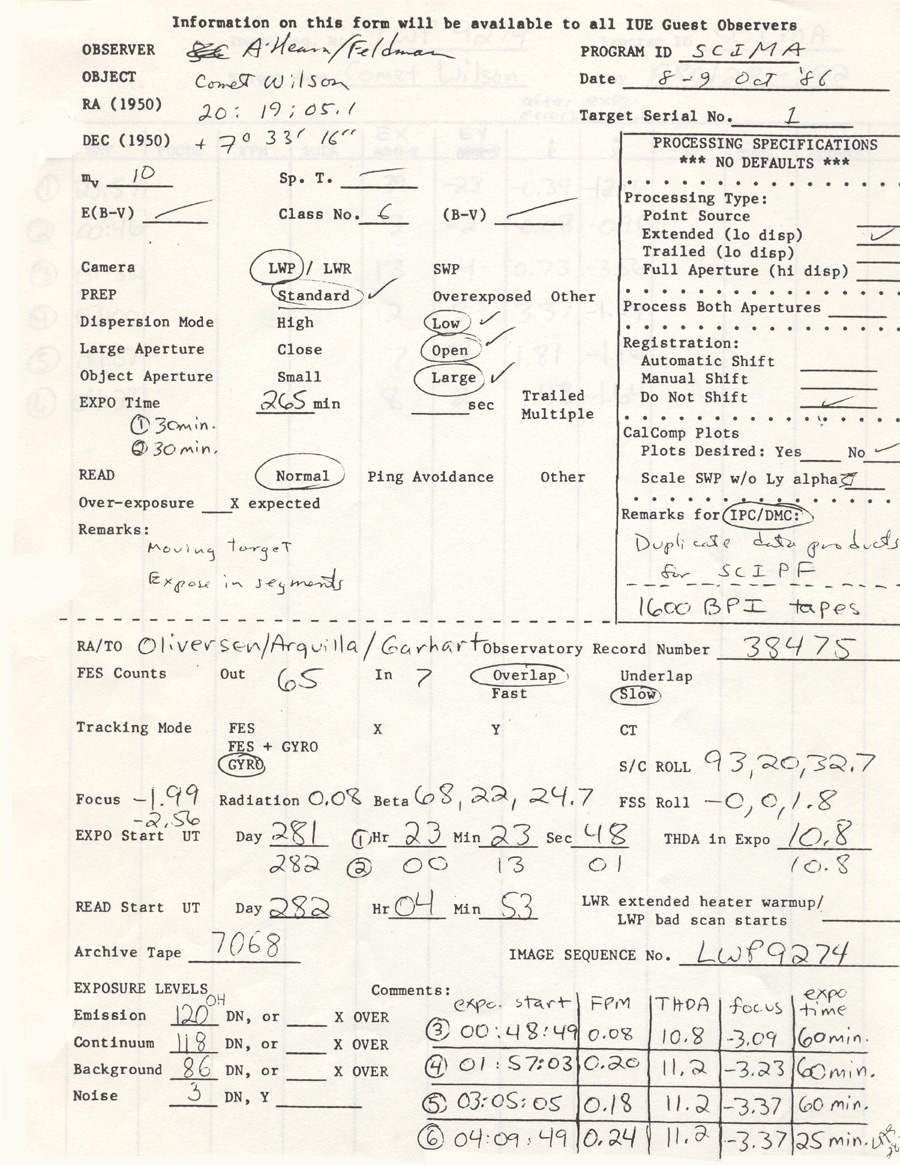 Information on this form will be available to all IUE Guest Observers
OBSERVER A'Hearn/Feldman PROGRAM ID SCIMA
OBJECT Comet Wilson Date 8-9 Oct '86
RA (1950) 20: 19: 05.1
Target Serial No. 1
DEC (1950) + 7° 33' 16"
PROCESSING SPECIFICATIONS
*** NO DEFAULTS ***
mv 10 Sp. T.
Processing Type:
E(B-V) Class No. 6 (B-V)
Point Source
Extended (lo disp) ✓
Trailed (lo disp)
Full Aperture (hi disp)
Camera LWP / LWR SWP
PREP Standard ✓ Overexposed Other
Process Both Apertures
Dispersion Mode High Low ✓
Large Aperture Close Open ✓
Registration:
Automatic Shift
Object Aperture Small Large ✓
Manual Shift
Do Not Shift ✓
EXPO Time 265 min sec Trailed
Multiple
① 30min.
② 30 min.
CalComp Plots
Plots Desired: Yes No ✓
READ Normal Ping Avoidance Other
Scale SWP w/o Ly alpha
Over-exposure X expected
Remarks for IPC/DMC:
Remarks:
Moving target
Expose in segments
Duplicate data products
for SCIPF
1600 BPI tapes
RA/TO Oliversen/Arquilla/Garhart Observatory Record Number 38475
FES Counts Out 65 In 7 Overlap Underlap
Fast Slow
Tracking Mode FES X Y CT
FES + GYRO
GYRO
S/C ROLL 93,20,32.7
Focus -1.99 Radiation 0.08 Beta 68, 22, 24.7 FSS Roll -0,0,1.8
-2.56
EXPO Start UT Day 281 ① Hr 23 Min 23 Sec 48 THDA in Expo 10.8
282 ② 00 13 01 10.8
READ Start UT Day 282 Hr 04 Min 53 LWR extended heater warmup/
LWP bad scan starts
Archive Tape 7068 IMAGE SEQUENCE No. LWP9274
EXPOSURE LEVELS Comments:
Emission 120 OH DN, or X OVER
Continuum 118 DN, or X OVER
Background 86 DN, or X OVER
Noise 3 DN, Y
expo. start FPM THDA focus expo time
③ 00:48:49 0.08 10.8 -3.09 60min.
④ 01:57:03 0.20 11.2 -3.23 60min.
⑤ 03:05:05 0.18 11.2 -3.37 60 min.
⑥ 04:09:49 0.24 11.2 -3.37 25 min.